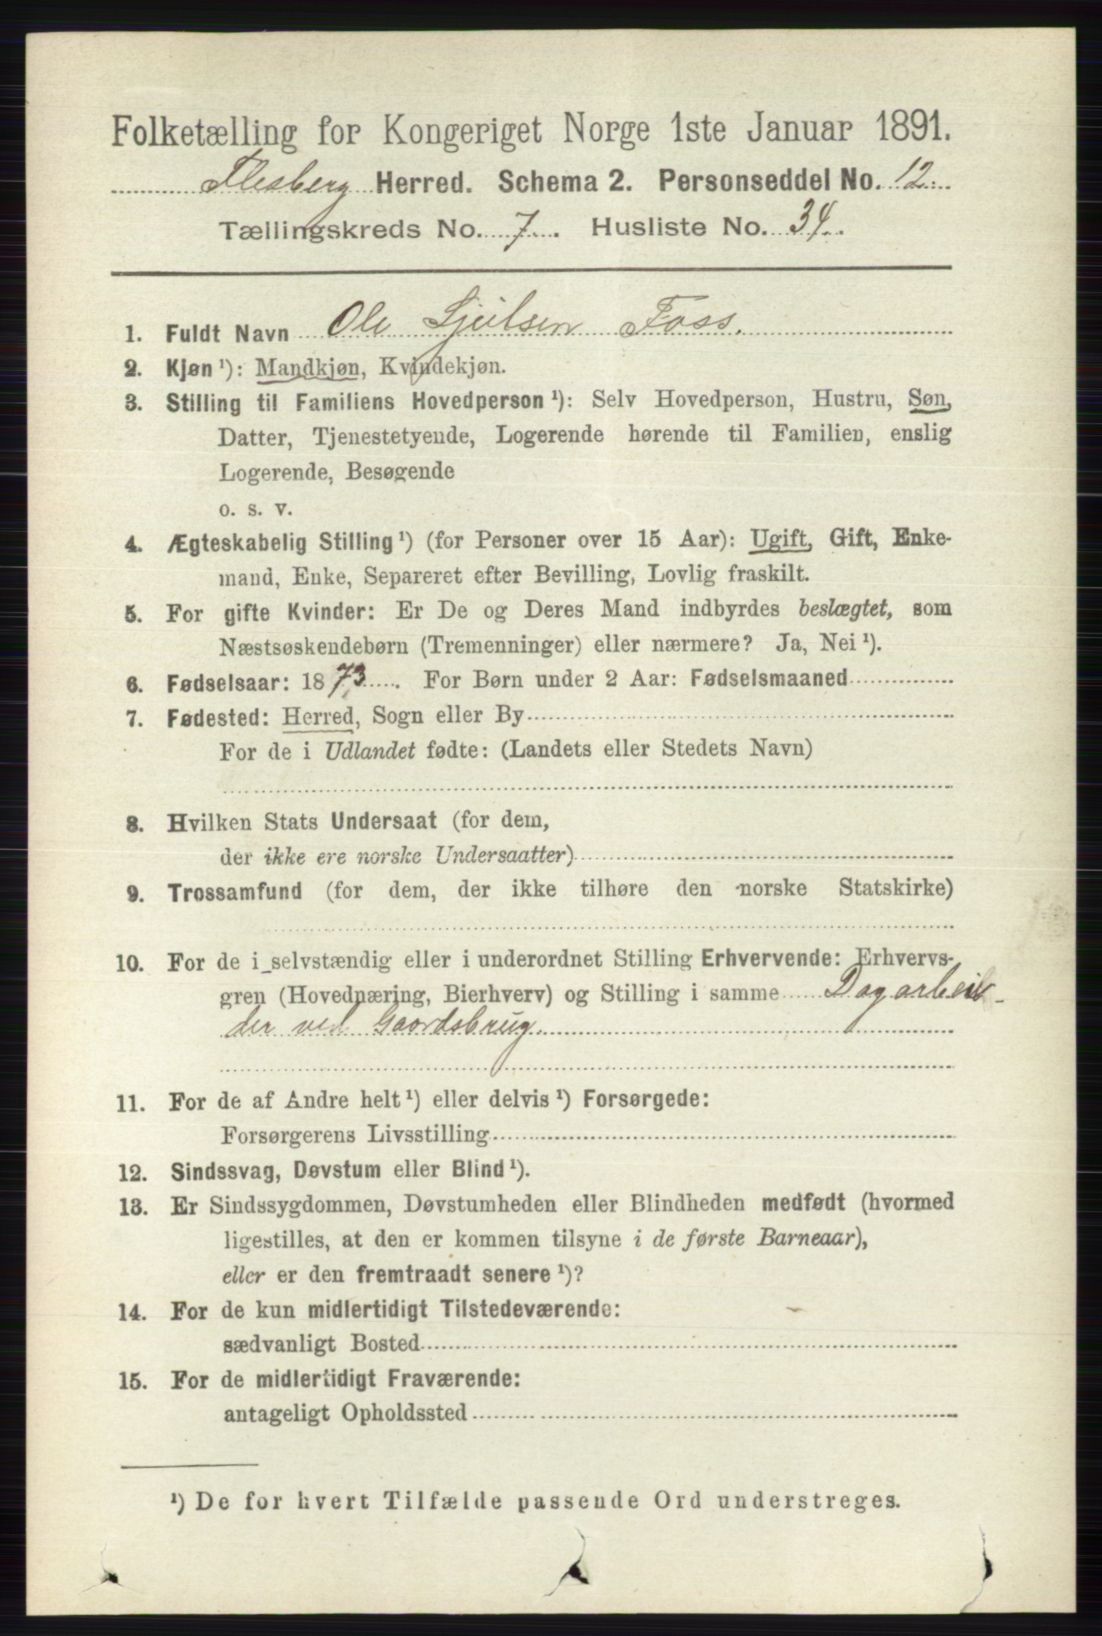 Folketælling for Kongeriget Norge 1ste Januar 1891.
Flesberg Herred. Schema 2. Personseddel No. 12.
Tællingskreds No. 7. Husliste No. 34.
1. Fuldt Navn Ole Foss.
2. Kjøn ¹): Mandkjøn, Kvindekjøn.
3. Stilling til Familiens Hovedperson ¹): Selv Hovedperson, Hustru, Søn,
Datter, Tjenestetyende, Logerende hørende til Familien, enslig
Logerende, Besøgende
o. s. v.
4. Ægteskabelig Stilling ¹) (for Personer over 15 Aar): Ugift, Gift, Enke-
mand, Enke, Separeret efter Bevilling, Lovlig fraskilt.
5. For gifte Kvinder: Er De og Deres Mand indbyrdes beslægtet, som
Næstsøskendebørn (Tremenninger) eller nærmere? Ja, Nei ¹).
6. Fødselsaar: 1873. For Børn under 2 Aar: Fødselsmaaned
7. Fødested: Herred, Sogn eller By
For de i Udlandet fødte: (Landets eller Stedets Navn)
8. Hvilken Stats Undersaat (for dem,
der ikke ere norske Undersaatter)
9. Trossamfund (for dem, der ikke tilhøre den norske Statskirke)
10. For de i selvstændig eller i underordnet Stilling Erhvervende: Erhvervs-
gren (Hovednæring, Bierhverv) og Stilling i samme Dagarbei-
der ved Gaardsbrug.
11. For de af Andre helt ¹) eller delvis ¹) Forsørgede:
Forsørgerens Livsstilling
12. Sindssvag, Døvstum eller Blind ¹).
13. Er Sindssygdommen, Døvstumheden eller Blindheden medfødt (hvormed
ligestilles, at den er kommen tilsyne i de første Barneaar),
eller er den fremtraadt senere ¹)?
14. For de kun midlertidigt Tilstedeværende:
sædvanligt Bosted
15. For de midlertidigt Fraværende:
antageligt Opholdssted
¹) De for hvert Tilfælde passende Ord understreges.